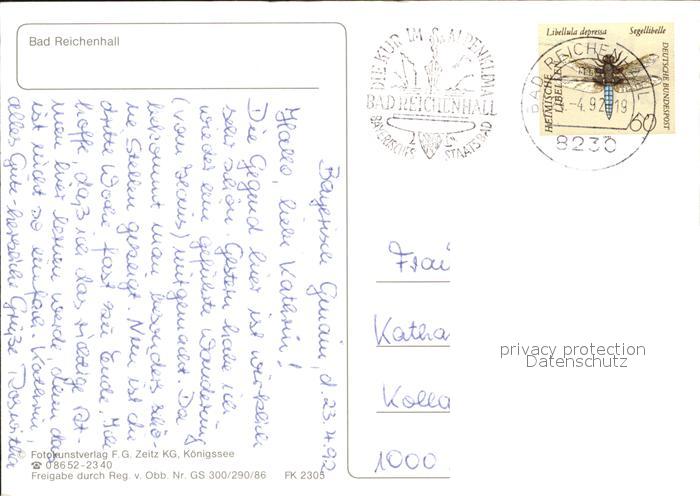 Bad Reichenhall
Bayerisch Gmain, d. 23.4.92
Hallo, liebe Kathrin!
Die Gegend hier ist wirklich
sehr schön. Gestern habe ich
wieder eine geführte Wanderung
(vom Haus) mitgemacht. Da
bekommt man besonders schö-
ne Stellen gezeigt. Nun ist die
dritte Woche fast zu Ende. Ich
hoffe, daß ich das richtige At-
men hier lernen werde, denn das
ist nicht so einfach. Kathrin,
alles Gute - herzliche Grüße Roswitha
© Fotokunstverlag F. G. Zeitz KG, Königssee
☎ 0 86 52 - 23 40
Freigabe durch Reg. v. Obb. Nr. GS 300/290/86 FK 2305
DIE KUR IM
ALPENKLIMA
BAD REICHENHALL
BAYERISCHES STAATSBAD
Libellula depressa Segellibelle
HEIMISCHE
LIBELLEN
DEUTSCHE BUNDESPOST
60
BAD REICHENHALL
-4.92-19
8230
Frau
Katha
Kolla
1000
privacy protection
Datenschutz